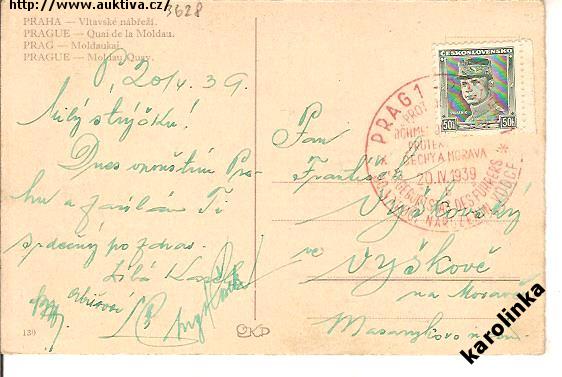 http://www.auktiva.cz/
3628
PRAHA — Vltavské nábřeží.
PRAGUE — Quai de la Moldau.
PRAG — Moldaukai.
PRAGUE — Moldau Quay.
P, 20/4. 39.
Milý strýčku!
Dnes opouštím Pra-
hu a zasílám Ti
srdečný pozdrav.
139
ČKD
ČESKOSLOVENSKO
50h 50h
PRAG 1
BÖHMEN
PROTEK
ČECHY A MORAVA
20.IV.1939
GEBURTSTAG DES FÜHRERS
NAROZENIN VŮDCE
Pan
František
ve
Vyškově
na Moravě
Masarykovo nám.
karolinka